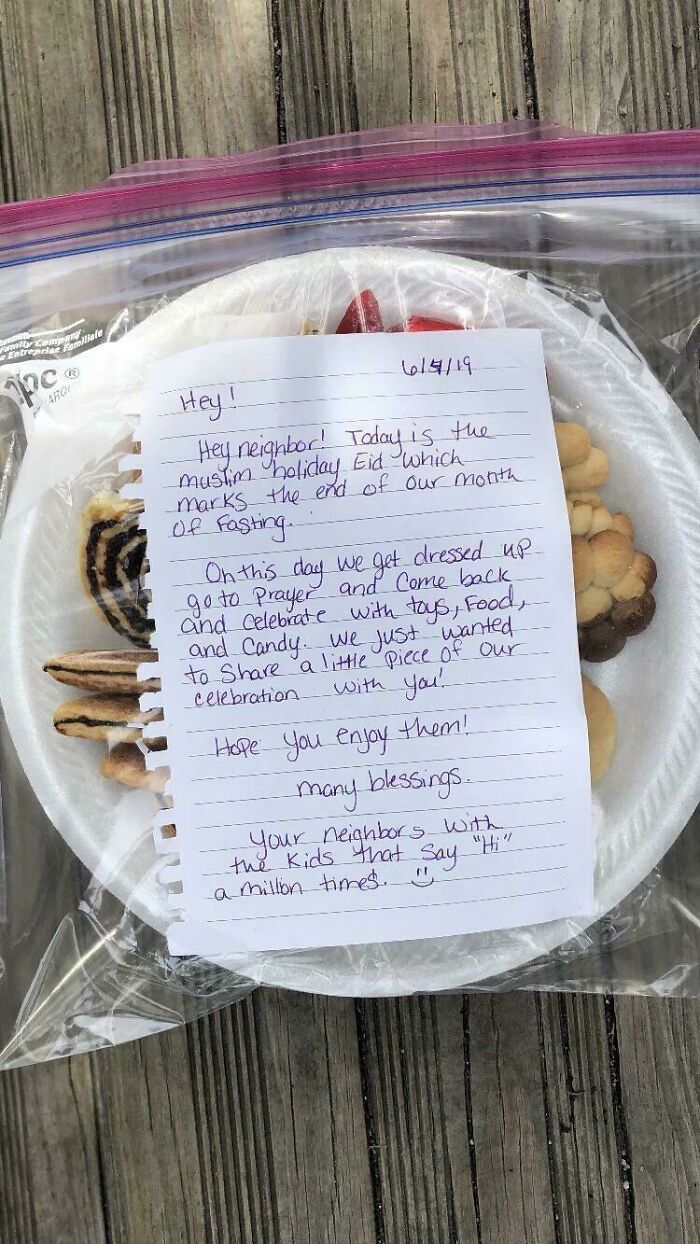 Family Company
Entreprise Familiale
®
6/4/19
Hey!
Hey neighbor! Today is the
muslim holiday Eid which
marks the end of our month
of Fasting.
On this day we get dressed up
go to Prayer and Come back
and Celebrate with toys, Food,
and Candy. We just wanted
to Share a little piece of our
celebration with you!
Hope you enjoy them!
many blessings.
Your neighbors with
the Kids that Say "Hi"
a million times.